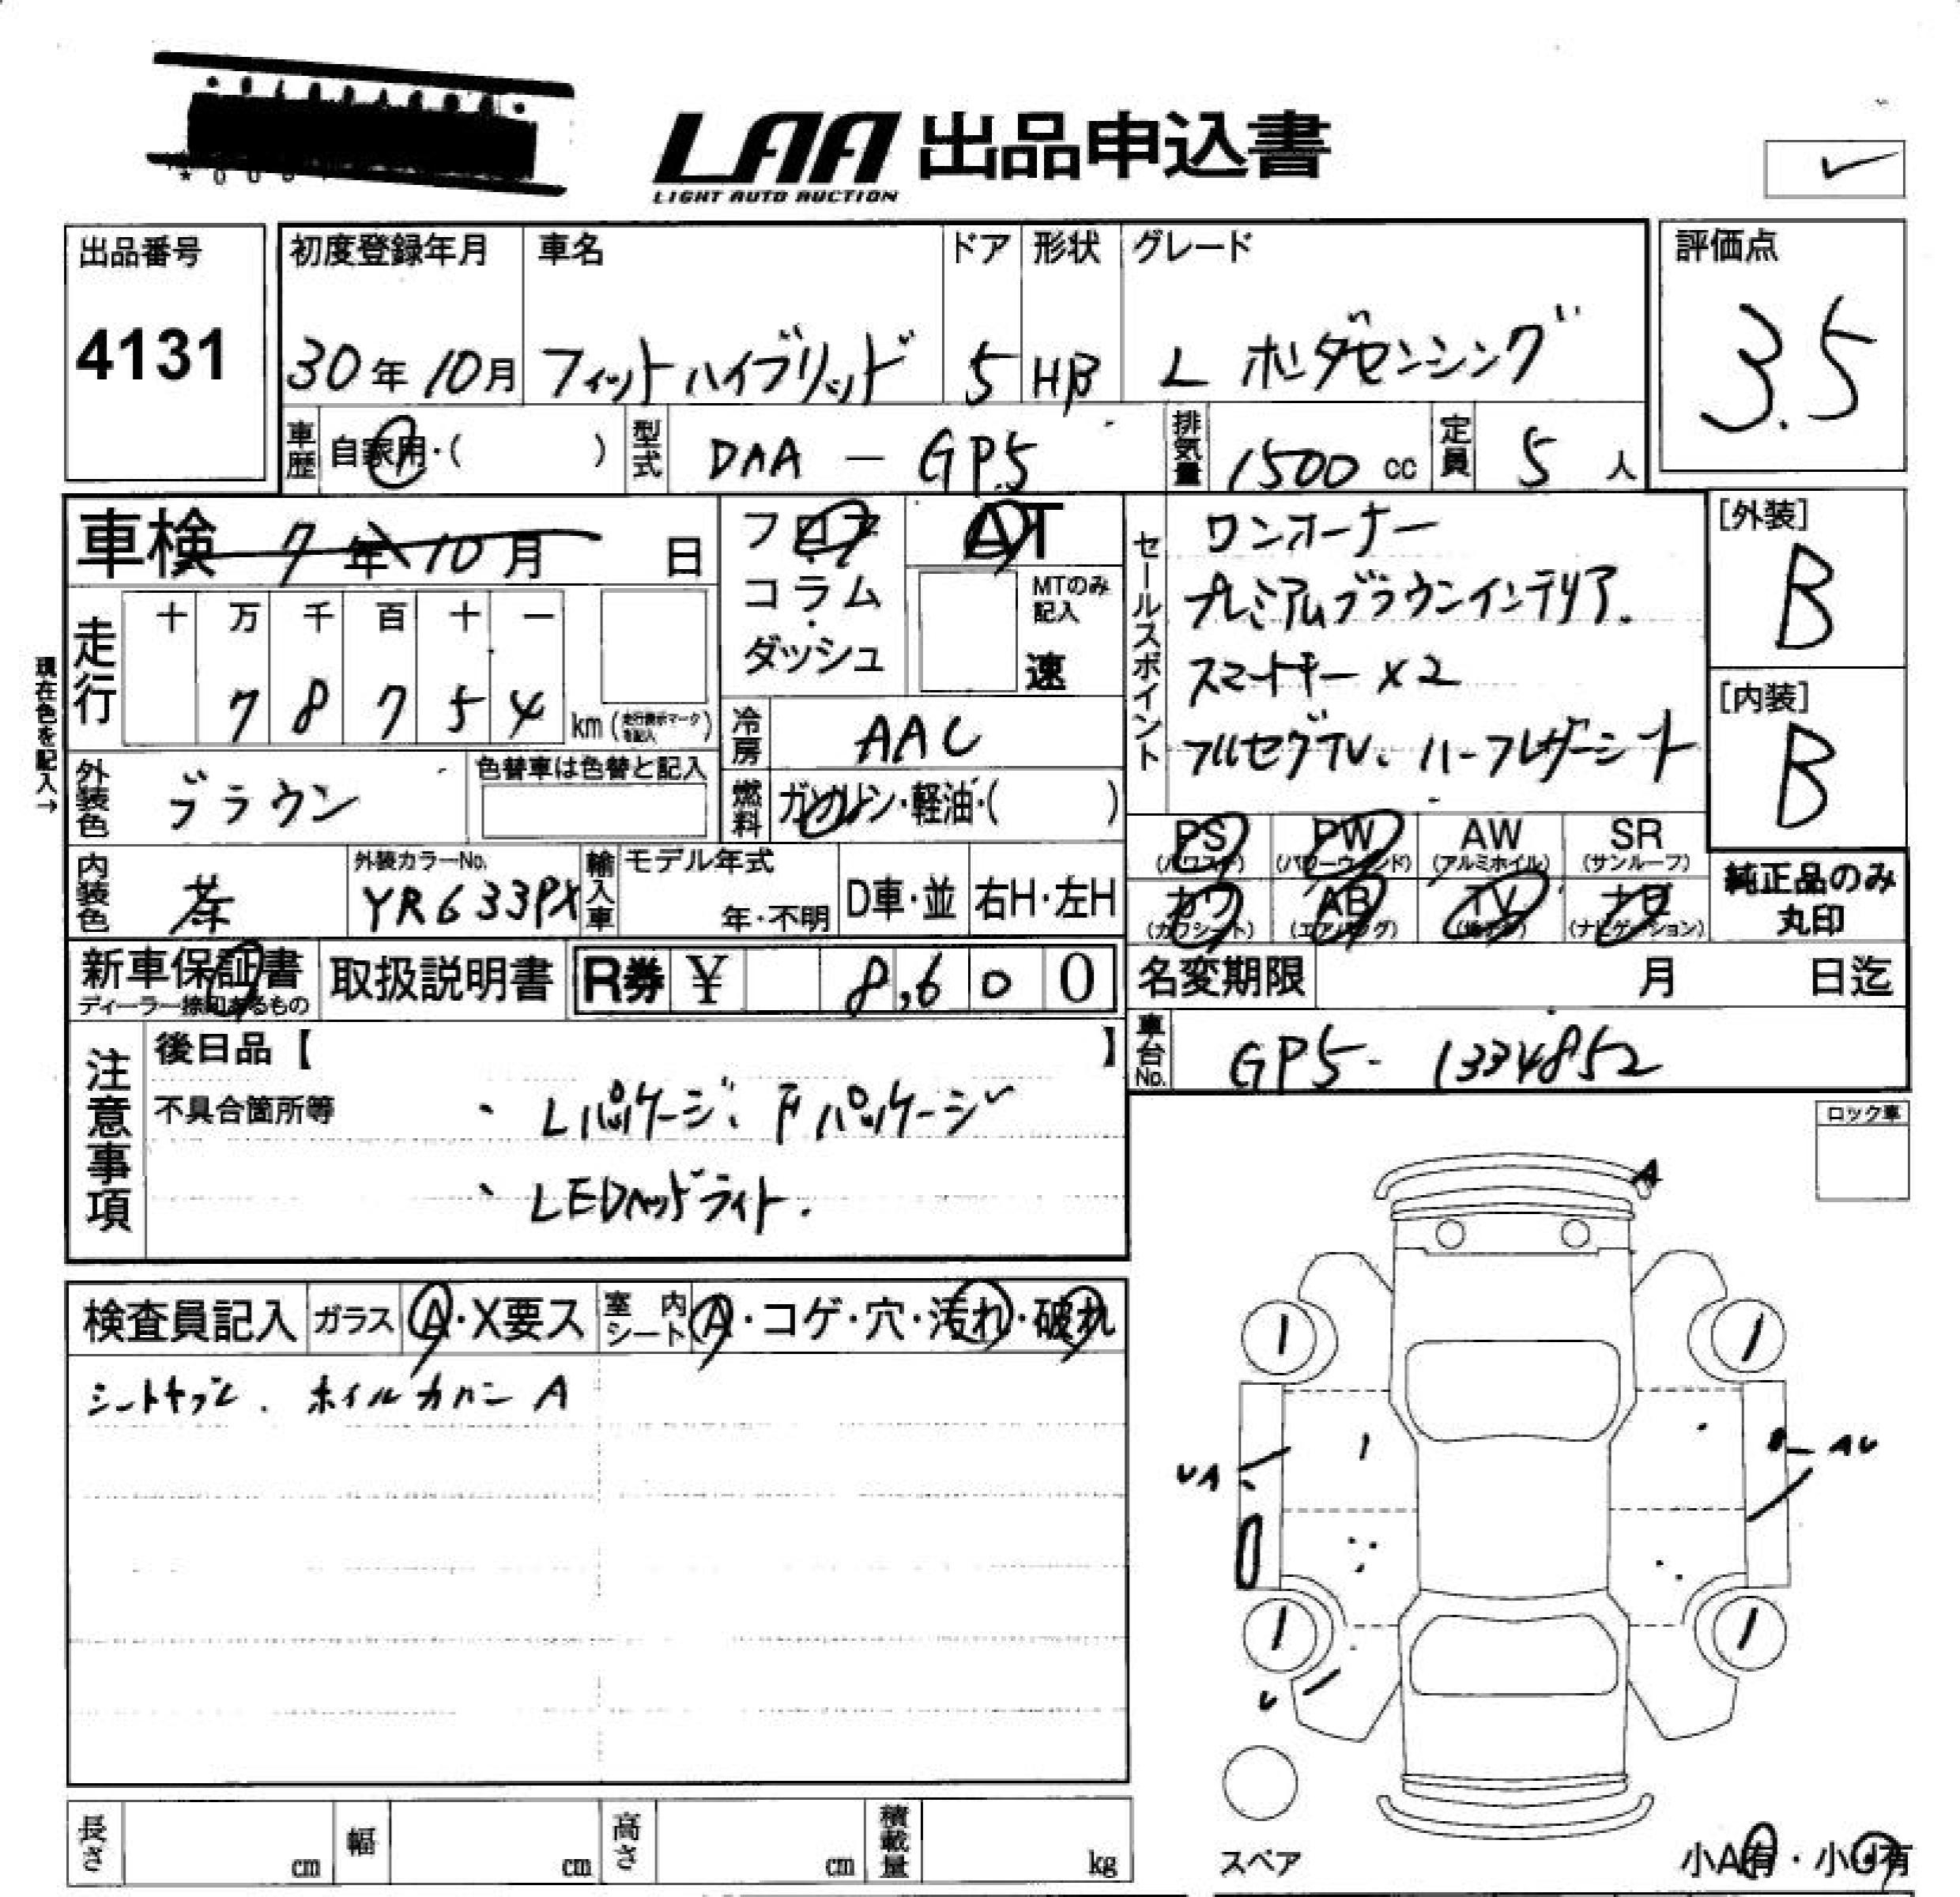 LAA 出品申込書
LIGHT AUTO AUCTION
出品番号
4131
初度登録年月
30年10月
車名
フィットハイブリッド
ドア
5
形状
HB
グレード
L ホンダセンシング
評価点
3.5
車歴
自家用・( )
型式
DAA - GP5
排気量
1500 cc
定員
5 人
車検 7年10月 日
フロア
コラム
ダッシュ
AT
MTのみ
記入
速
セールスポイント
ワンオーナー
プレミアムブラウンインテリア.
スマートキー×2
フルセグTV、ハーフレザーシート
[外装]
B
[内装]
B
現在色を記入→
走行
十 万 千 百 十 一
7 8 7 5 4
km (走行表示マークを記入)
冷房
AAC
燃料
ガソリン・軽油・( )
外装色
ブラウン
色替車は色替と記入
内装色
茶
外装カラーNo.
YR633PX
輸入車
モデル年式
年・不明
D車・並
右H・左H
PS
(パワステ)
PW
(パワーウィンド)
AW
(アルミホイル)
SR
(サンルーフ)
カワ
(カワシート)
AB
(エアバッグ)
TV
ナビ
(ナビゲーション)
純正品のみ
丸印
新車保証書
ディーラー捺印あるもの
取扱説明書
R券 ¥ 8,600
名変期限 月 日迄
車台No.
GP5-1334852
注意事項
後日品【 】
不具合箇所等
、Lパッケージ、Fパッケージ
、LEDヘッドライト.
ロック車
検査員記入
ガラス
A・X要ス
室内
シート
A・コゲ・穴・汚れ・破れ
シートヤブレ . ホイルカバー A
A
UA
AU
U
スペア
小A有・小U有
長さ cm
幅 cm
高さ cm
積載量 kg